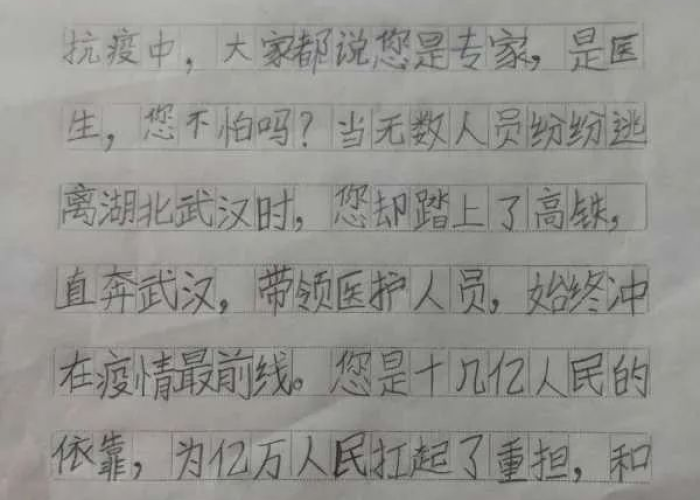 抗疫中，大家都说您是专家，是医
生，您不怕吗？当无数人员纷纷逃
离湖北武汉时，您却踏上了高铁，
直奔武汉，带领医护人员，始终冲
在疫情最前线。您是十几亿人民的
依靠，为亿万人民扛起了重担，和